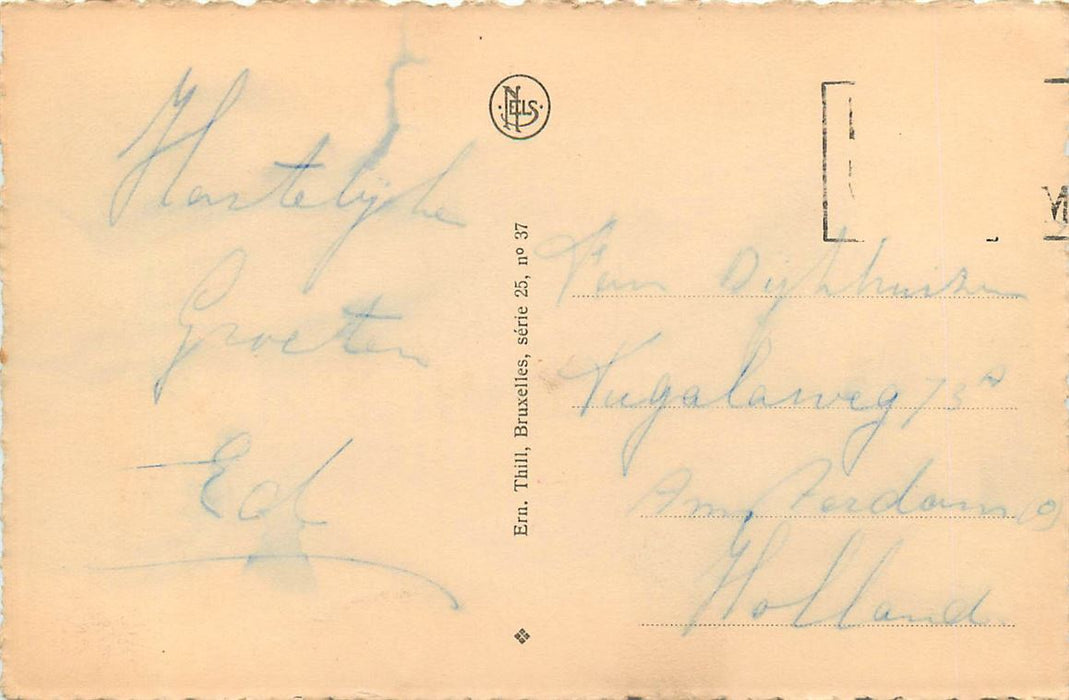 Hartelijke
Groeten
Ed
NELS
Ern. Thill, Bruxelles, série 25, nº 37
Fam Dijkhuizen
Tugelaweg 73 A
Amsterdam (O)
Holland